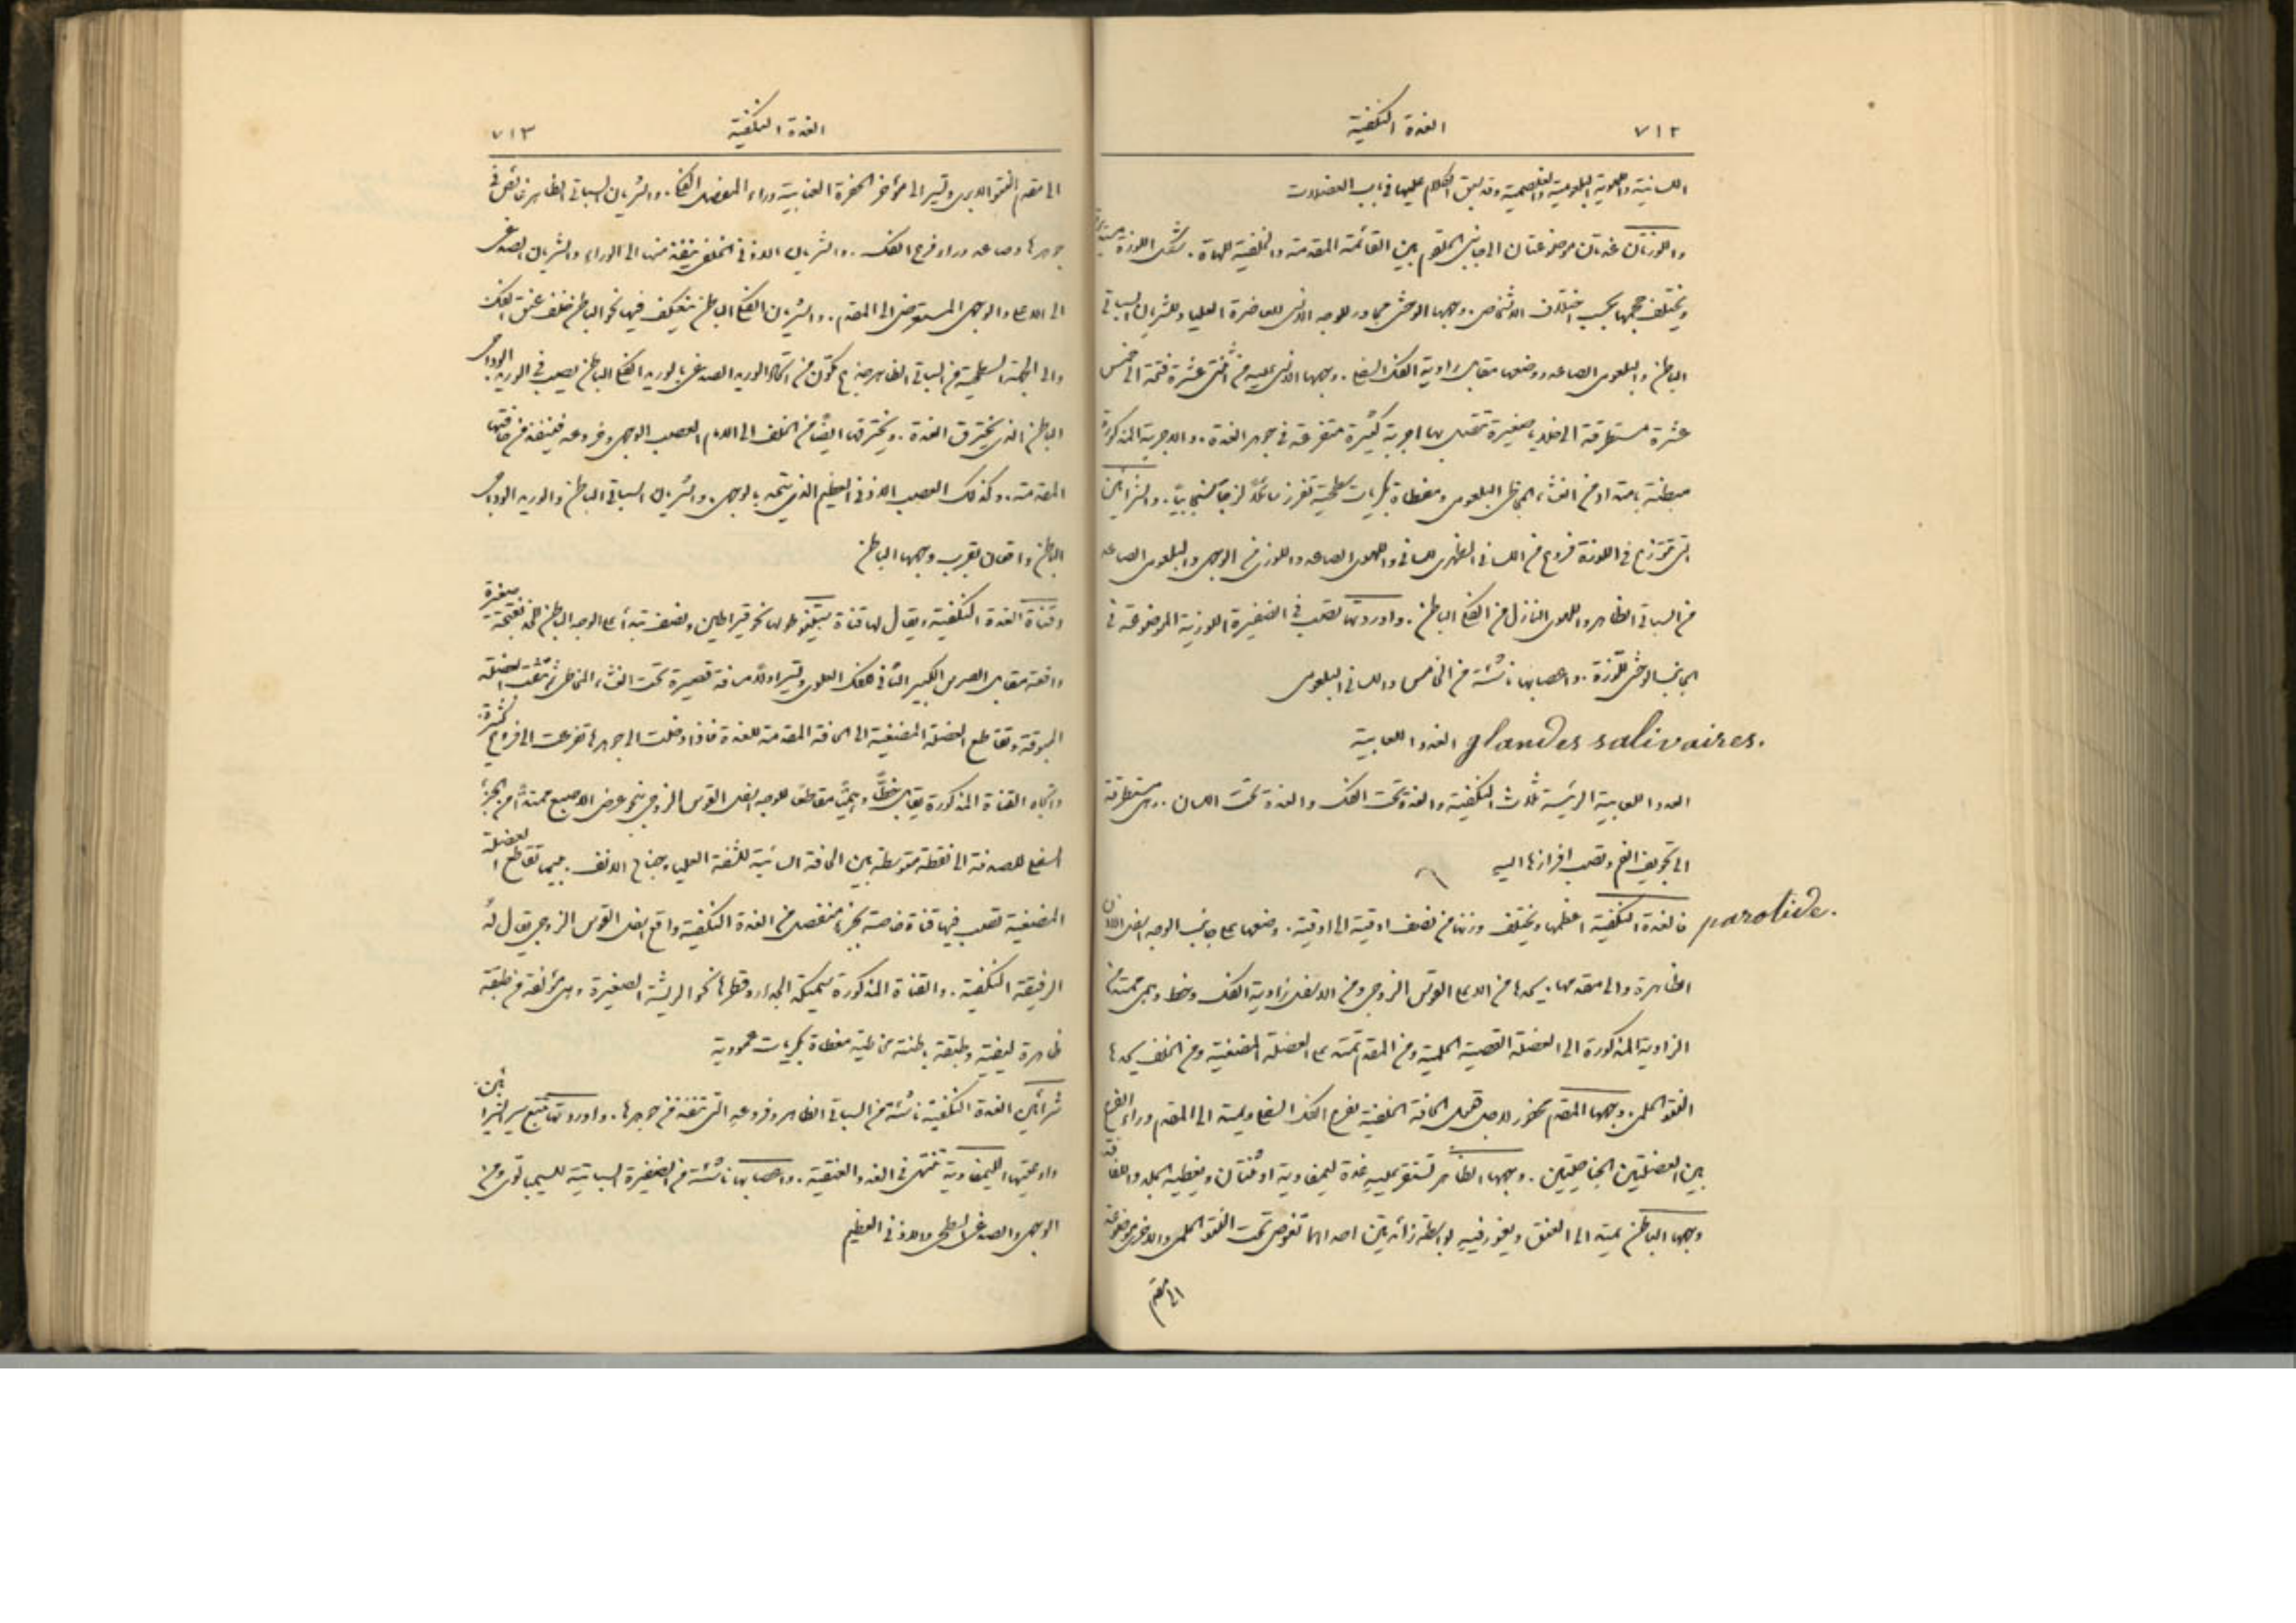 ٧١٢ الغدة النكفية
اللسانية واللهوية البلعومية والغلصمية وقد سبق الكلام عليها في باب العضلات
واللوزتان غدتان موضوعتان الى جانبي الحلقوم بين القائمة المقدمة والخلفية للهاة. شكل اللوزة
ويختلف حجمها بحسب اختلاف الاشخاص. وجهها الوحشي مجاور للوجه الانسي للعاصرة العليا وللشريان السباتي
الباطن والبلعومي الصاعد ووضعها مقابل زاوية الفك السفلي. ووجهها الانسي عليه من اثنتي عشرة فتحة الى خمس
عشرة مستطرقة الى خلايا صغيرة تتصل بها اجربة كثيرة متفرعة في جوهر الغدة. والاجربة المذكورة
مبطنة بامتداد من الغشاء المخاطي البلعومي ومغطاة بكريات سطحية تفرز سائلاً لزجاً سنجابياً. والشرائين
التي تتوزع في اللوزة فروع من اللساني الظهري للساني واللهوي الصاعد واللوزي من الوجهي والبلعومي الصاعد
من السباتي الظاهر واللهوي النازل من الفكي الباطن. واوردتها تصب في الضفيرة اللوزية الموضوعة في
الجانب الوحشي للوزة. واعصابها ناشئة من الخامس واللساني البلعومي
الغدد اللعابية glandes salivaires.
الغدد اللعابية الرئيسة ثلاث النكفية والغدة تحت الفك والغدة تحت اللسان. وهي مستطرقة
الى تجويف الفم وتصب افرازها اليه
parotide. فالغدة النكفية اعظمها ويختلف وزنها من نصف اوقية الى اوقية. وضعها على جانب الوجه اسفل الاذن
الظاهرة والى مقدمها. يحدها من الاعلى القوس الزوجي ومن الاسفل زاوية الفك وخط وهمي ممتد من
الزاوية المذكورة الى العضلة القصية الحلمية ومن المقدم تمتد على العضلة المضغية ومن الخلف يحدها
النتو الحلمي. وجهها المقدم محفور لاجل قبول الحافة الخلفية لفرع الفك السفلي ويمتد الى المقدم وراء الفرع
بين العضلتين الجناحيتين. ووجهها الظاهر تستقر عليه غدة ليمفاوية او ثنتان ويغطيه الجلد واللفافة
وجهها الباطن يمتد الى العنق ويغور فيه بواسطة زائدتين احداهما تغوص تحت النتو الحلمي والاخرى موضوعة
الى مقدم
الغدة النكفية ٧١٣
الى مقدم النتو الابري وتسير الى مؤخر الحفرة العنابية وراء المفصل الفكي. والشريان السباتي الظاهر غائص في
جوهرها وصاعد وراء فرع الفك. والشريان الاذني الخلفي ينفذ منها الى الوراء والشريان الصدغي
الى الاعلى والوجهي المستعرض الى المقدم. والشريان الفكي الباطن ينعكف فيها نحو الباطن خلف عنق الفك
والى الجهة السطحية من السباتي الظاهر جذع مكون من اتحاد الوريد الصدغي بالوريد الفكي الباطن يصب في الوريد الوداجي
الباطن الذي يخترق الغدة. ويخترقها ايضاً من الخلف الى الامام العصب الوجهي وفروعه فينفذ من حافتها
المقدمة. وكذلك العصب الاذني العظيم الذي يتحد بالوجهي. والشريان السباتي الباطن والوريد الوداجي
الباطن واقعان بقرب وجهها الباطن
وقناة الغدة النكفية ويقال لها قناة ستينو طولها نحو قيراطين ونصف تبدأ على الوجه الباطن للخد بفتحة صغيرة
واقعة مقابل الضرس الكبير الثاني للفك العلوي وتسير اولاً مسافة قصيرة تحت الغشاء المخاطي ثم تثقب العضلة
المبوقة وتقاطع العضلة المضغية الى الحافة المقدمة للغدة فاذا دخلت الى جوهرها تفرعت الى فروع كثيرة.
واتجاه القناة المذكورة يقابل خطاً وهمياً مقاطعاً للوجه اسفل القوس الزوجي بنحو عرض الاصبع ممتداً من الجزء
السفلي للصدفة الى نقطة متوسطة بين الحافة السائبة للشفة العليا وجناح الانف. حينما تقاطع العضلة
المضغية تصب فيها قناة خاصة بجزء منفصل من الغدة النكفية واقع اسفل القوس الزوجي يقال له
الرفيقة النكفية. والقناة المذكورة سميكة الجدار وقطرها نحو الريشة الصغيرة وهي مؤلفة من طبقة
ظاهرة ليفية وطبقة باطنة مخاطية مغطاة بكريات عمودية
شرائين الغدة النكفية ناشئة من السباتي الظاهر وفروعه التي تنفذ من جوهرها. واوردتها تتبع سير الشرائين.
واوعيتها الليمفاوية تنتهي في الغدد العنقية. واعصابها ناشئة من الضفيرة السباتية للسيمباتوي ومن
الوجهي والصدغي السطحي والاذني العظيم